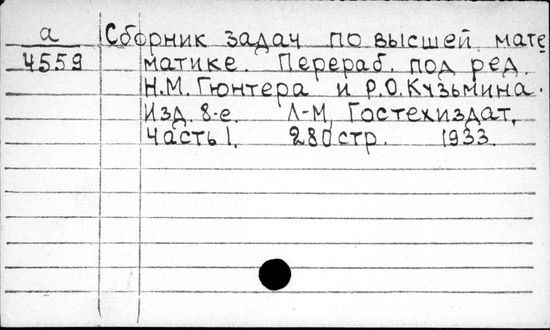 а Сборник задач по высшей мате
4559 матике. Перераб. под ред.
Н.М. Гюнтера и Р.О. Кузьмина.
Изд. 8-е. Л-М, Гостехиздат,
Часть 1. 280 стр. 1933.